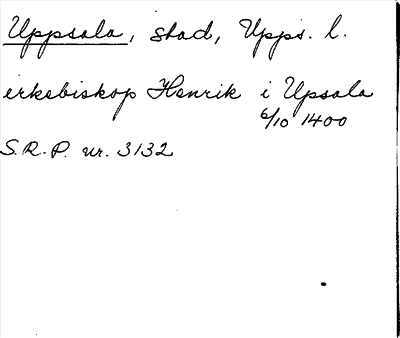 Uppsala, stad, Upps. l.
erkebiskop Henrik i Upsala
6/10 1400
S.R.P. nr. 3132